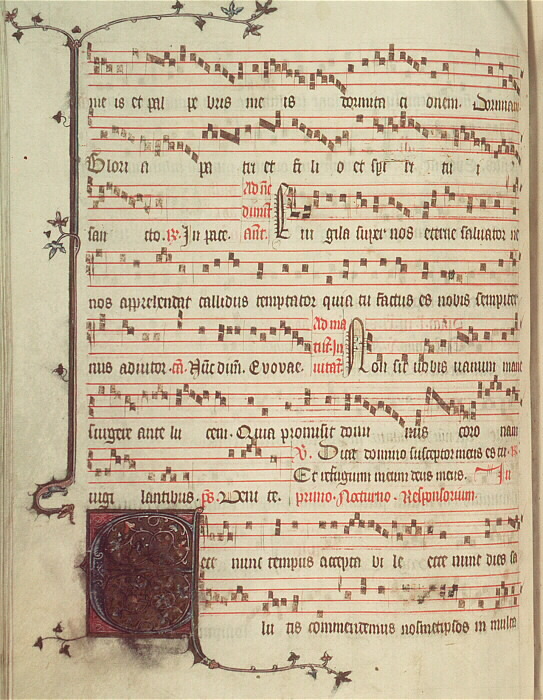 me is et pal pe bris me is dormita ci onem. Dormitaci
Gloria a pa tri et fi li o et spi ri tu
san cto. ꝶ. In pace. Ad nūc dimitt. anē. E vi gila super nos eterne salvator ne
nos apprehendat callidus temptator quia tu factus es nobis sempiter
nus adiutor. cā. Nūc dim. Evovae. Ad matut. Invitat. Non sit vobis vanum mane
surgere ante lu cem. Quia promisit domi nus coro nam
℣. Dicet domino susceptor meus es tu. ꝶ.
Et refugium meum deus meus. In
vigi lantibus. ps. Veni te. primo. Nocturno. Responsorium.
Ecce nunc tempus accepta bi le ecce nunc dies sa
lu tis commendemus nosmetipsos in multa